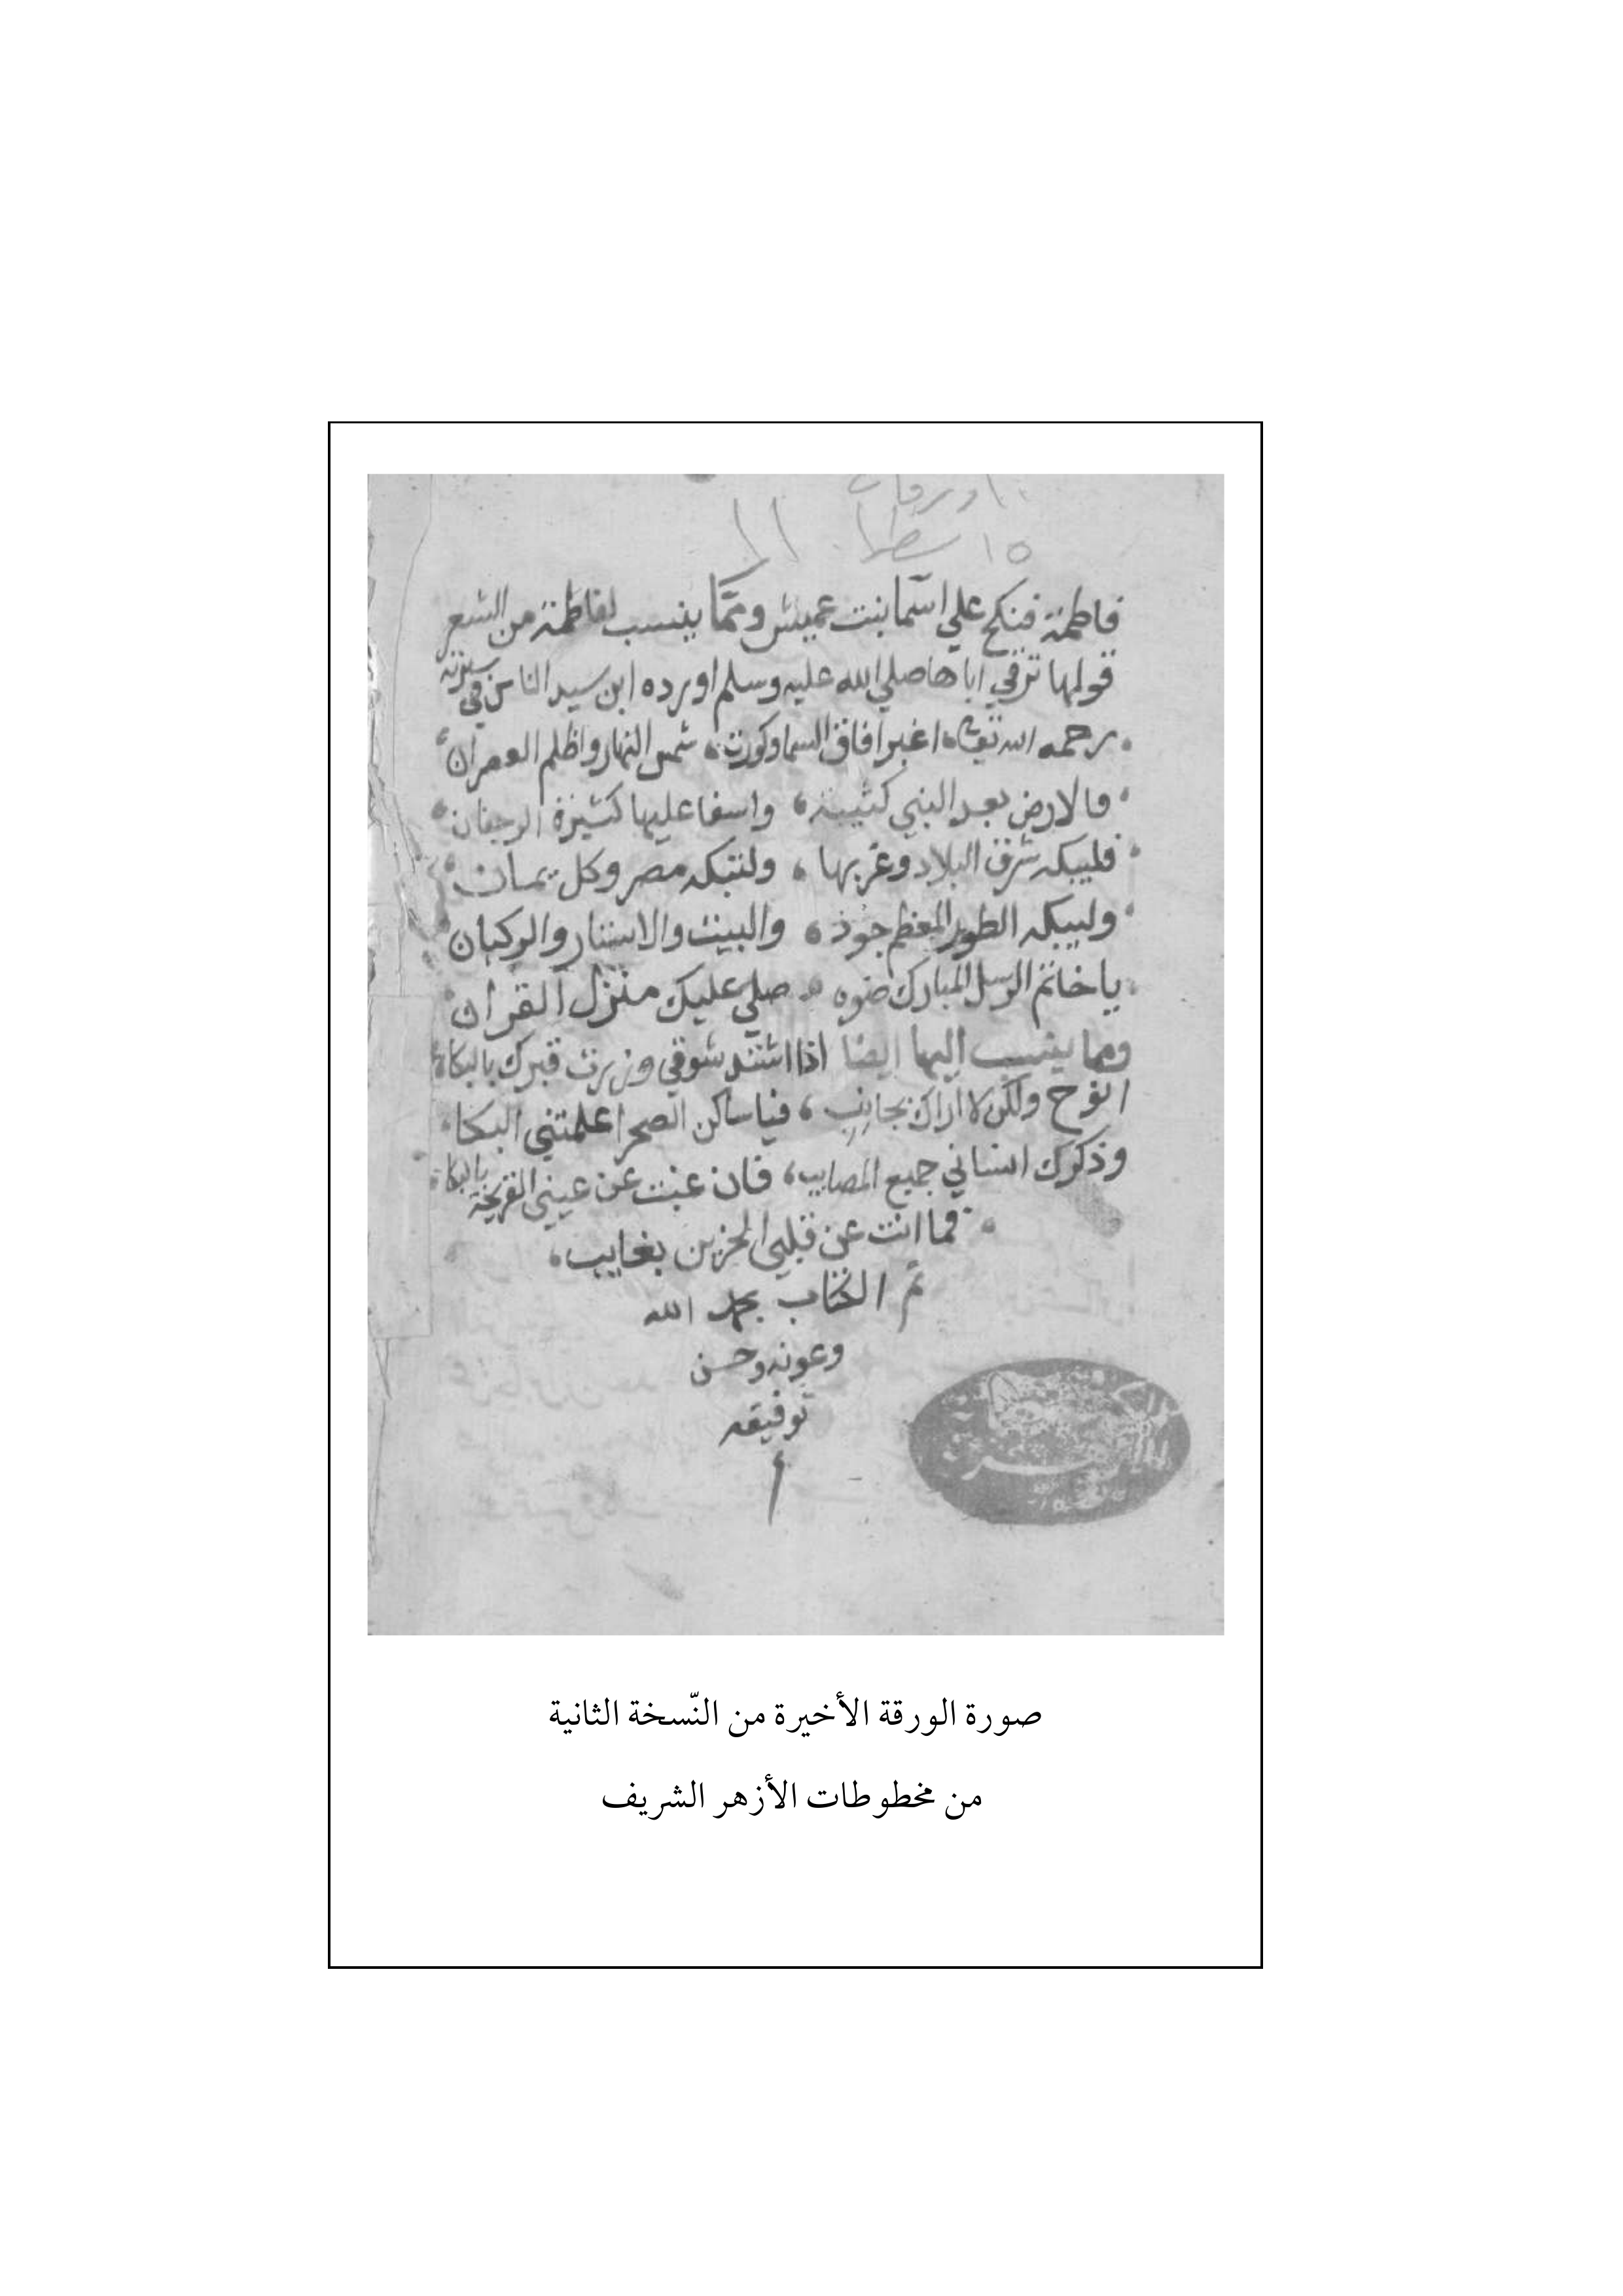 ١٠ ورقات
١٥ سطرا
فاطمة فنكح علي اسما بنت عميس وممّا ينسب لفاطمة من الشعر
قولها ترثي اباها صلي الله عليه وسلم اورده ابن سيد الناس في سيرته
رحمه الله تعالى اغبر افاق السما وكورت شمس النهار واظلم العصران
فالارض بعد النبي كئيبة واسفا عليها كثيرة الرجفان
فليبكه شرق البلاد وغربها ولتبكه مصر وكل يمان
وليبكه الطور المعظم جوده والبيت والاستار والركبان
يا خاتم الرسل المبارك ضوه صلي عليك منزل القران
ومما ينسب اليها ايضا اذا اشتد شوقي وزرت قبرك بالبكا
انوح ولكن لا اراك بجانب فيا ساكن الصحرا علمتني البكا
وذكرك انساني جميع المصايب فان غبت عن عيني القريحة بالبكا
فما انت عن قلبي الحزين بغايب
تم الكتاب بحمد الله
وعونه وحسن
توفيقه
صورة الورقة الأخيرة من النّسخة الثانية
من مخطوطات الأزهر الشريف